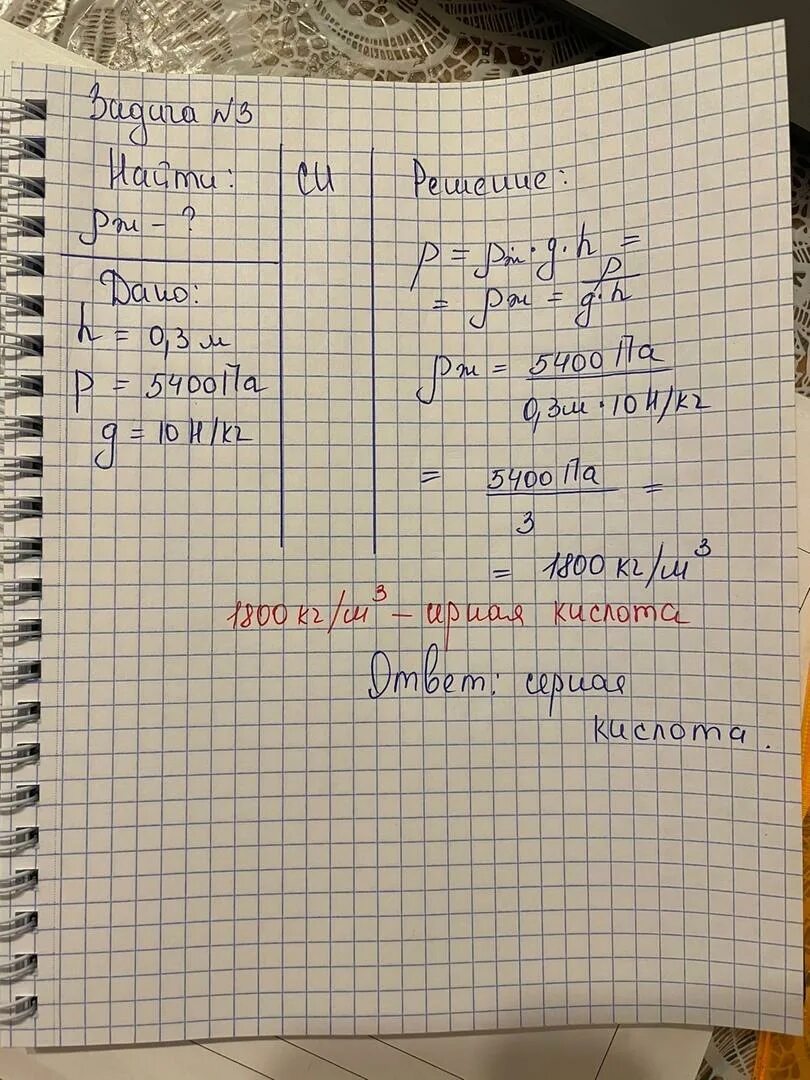 Задача №3
Найти:
ρж - ?
Дано:
h = 0,3 м
p = 5400 Па
g = 10 Н/кг
СИ
Решение:
p = ρж · g · h =
= ρж = p / g·h
ρж = 5400 Па / 0,3м · 10 Н/кг
= 5400 Па / 3 =
= 1800 кг/м³
1800 кг/м³ – серная кислота
Ответ: серная
кислота.